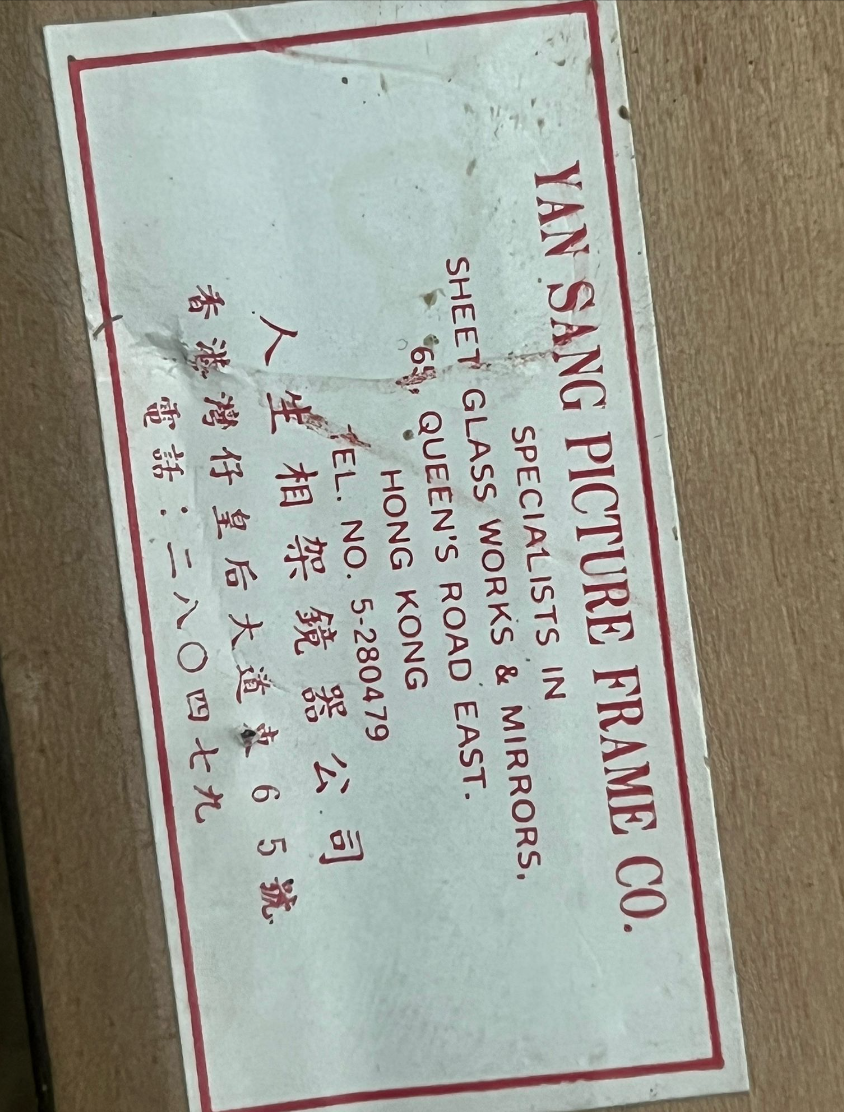 YAN SANG PICTURE FRAME CO.
SPECIALISTS IN
SHEET GLASS WORKS & MIRRORS,
65, QUEEN'S ROAD EAST.
HONG KONG
TEL. NO. 5-280479
人生相架鏡器公司
香港灣仔皇后大道東65號
電話：二八〇四七九